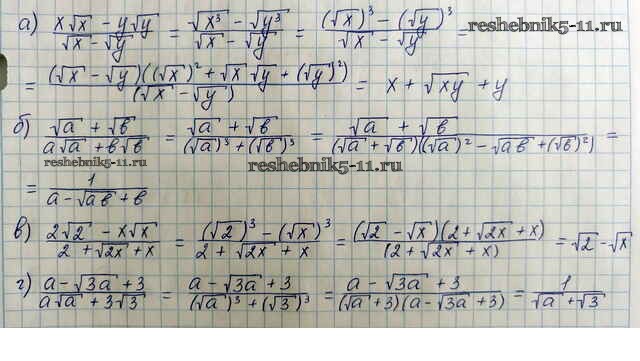 а) (x√x - y√y)/(√x - √y) = (√x³ - √y³)/(√x - √y) = ((√x)³ - (√y)³)/(√x - √y) = reshebnik5-11.ru
= ((√x - √y)((√x)² + √x √y + (√y)²))/(√x - √y) = x + √xy + y
б) (√a + √в)/(a√a + в√в) = (√a + √в)/((√a)³ + (√в)³) = (√a + √в)/((√a + √в)((√a)² - √aв + (√в)²)) =
reshebnik5-11.ru
reshebnik5-11.ru
= 1/(a - √aв + в)
в) (2√2 - x√x)/(2 + √2x + x) = ((√2)³ - (√x)³)/(2 + √2x + x) = ((√2 - √x)(2 + √2x + x))/(2 + √2x + x) = √2 - √x
г) (a - √3a + 3)/(a√a + 3√3) = (a - √3a + 3)/((√a)³ + (√3)³) = (a - √3a + 3)/((√a + 3)(a - √3a + 3)) = 1/(√a + √3)